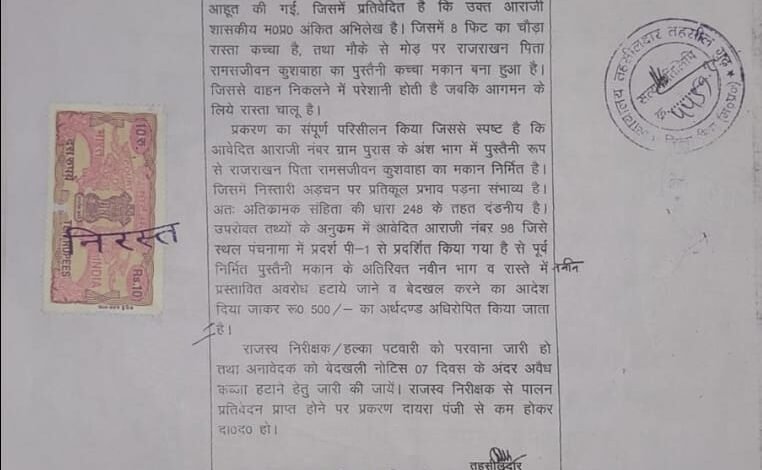 आहूत की गई, जिसमें प्रतिवेदित है कि उक्त आराजी
शासकीय म0प्र0 अंकित अभिलेख है। जिसमें 8 फिट का चौड़ा
रास्ता कच्चा है, तथा मौके से मोड़ पर राजराखन पिता
रामसजीवन कुशवाहा का पुस्तैनी कच्चा मकान बना हुआ है।
जिससे वाहन निकलने में परेशानी होती है जबकि आगमन के
लिये रास्ता चालू है।
प्रकरण का संपूर्ण परिसीलन किया जिससे स्पष्ट है कि
आवेदित आराजी नंबर ग्राम पुरास के अंश भाग में पुस्तैनी रूप
से राजराखन पिता रामसजीवन कुशवाहा का मकान निर्मित है।
जिसमें निस्तारी अड़चन पर प्रतिकूल प्रभाव पड़ना संभाव्य है।
अतः अतिक्रामक संहिता की धारा 248 के तहत दंडनीय है।
उपरोक्त तथ्यों के अनुक्रम में आवेदित आराजी नंबर 98 जिसे
स्थल पंचनामा में प्रदर्श पी-1 से प्रदर्शित किया गया है से पूर्व
निर्मित पुस्तैनी मकान के अतिरिक्त नवीन भाग व रास्ते में नवीन
प्रस्तावित अवरोध हटाये जाने व बेदखल करने का आदेश
दिया जाकर रू0 500/- का अर्थदण्ड अधिरोपित किया जाता
है।
राजस्व निरीक्षक/हल्का पटवारी को परवाना जारी हो
तथा अनावेदक को बेदखली नोटिस 07 दिवस के अंदर अवैध
कब्जा हटाने हेतु जारी की जायें। राजस्व निरीक्षक से पालन
प्रतिवेदन प्राप्त होने पर प्रकरण दायरा पंजी से कम होकर
दा0द0 हो।
तहसीलदार
10 रु.
भारत
दस रुपये
निरस्त
TEN RUPEES
INDIA
Rs.10
न्यायालय तहसीलदार तहसील गुढ़
सत्यप्रतिलिपि
(म०प्र०)